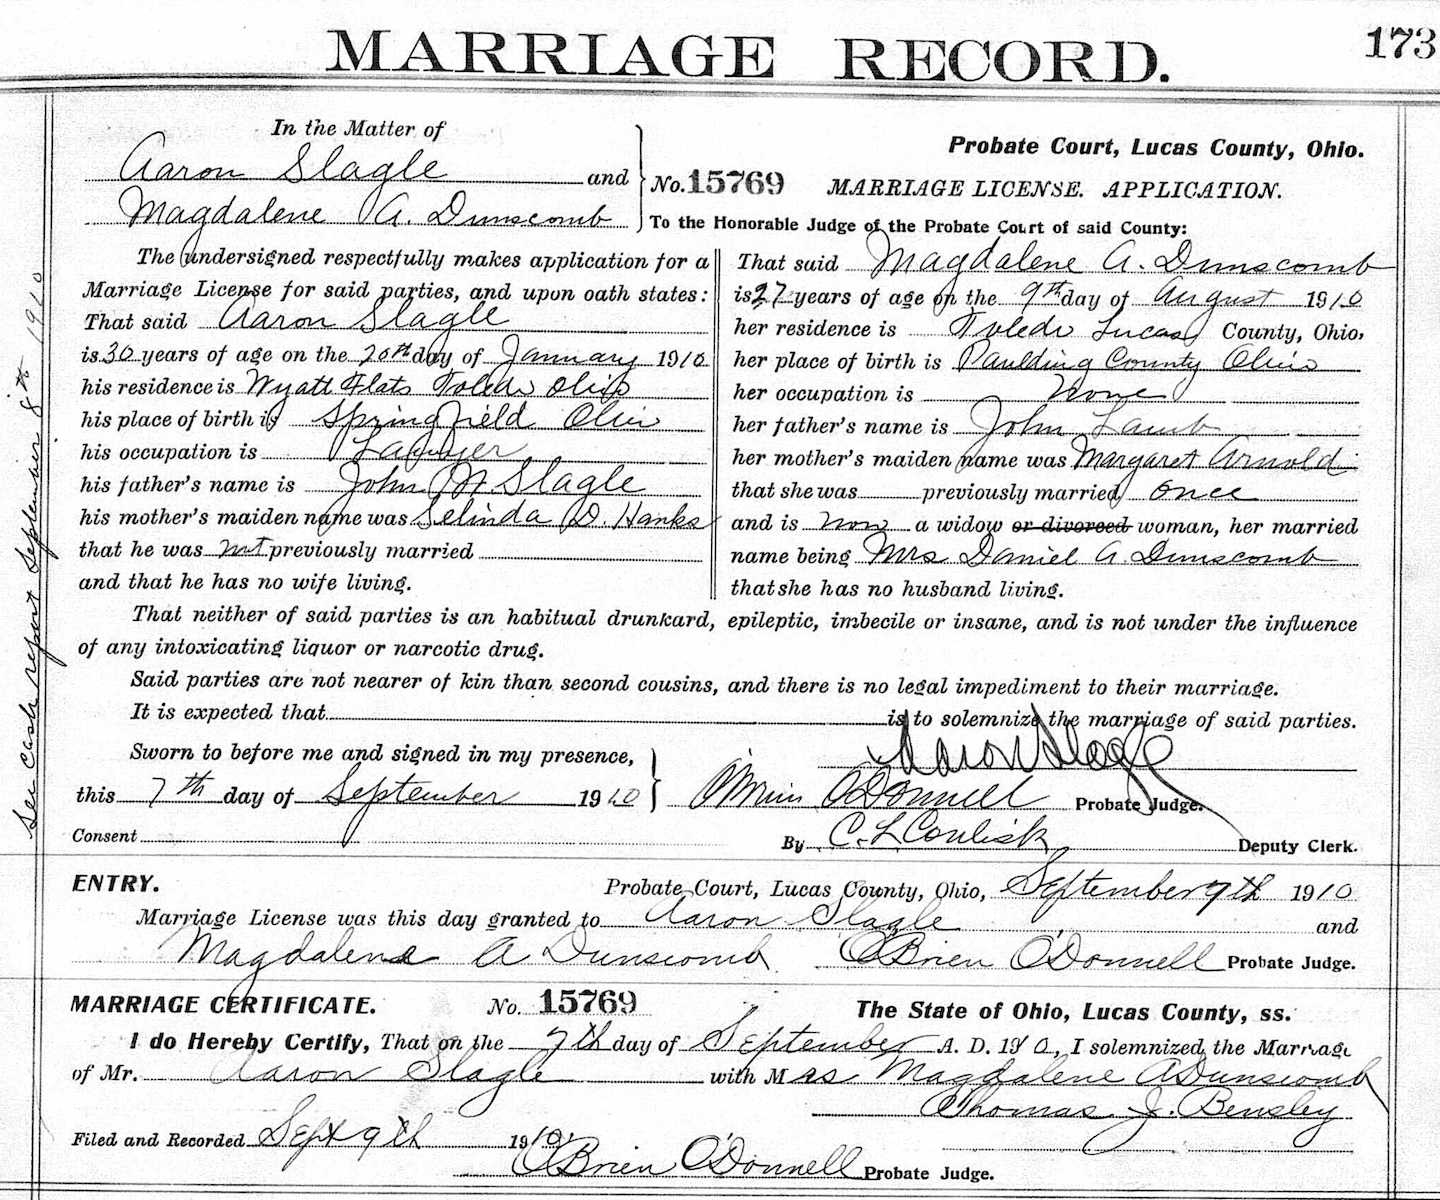 MARRIAGE RECORD.
173
In the Matter of
Aaron Slagle and
Magdalene A. Dunscomb
Probate Court, Lucas County, Ohio.
No. 15769 MARRIAGE LICENSE. APPLICATION.
To the Honorable Judge of the Probate Court of said County:
The undersigned respectfully makes application for a
Marriage License for said parties, and upon oath states:
That said Aaron Slagle
is 30 years of age on the 20th day of January 1910
his residence is Wyatt Flats Toledo Ohio
his place of birth is Springfield Ohio
his occupation is
his father's name is John M. Slagle
his mother's maiden name was Selinda D. Hanks
that he was not previously married
and that he has no wife living.
That said Magdalene A. Dunscomb
is 27 years of age on the 9th day of August 1910
her residence is Toledo Lucas County, Ohio,
her place of birth is Paulding County Ohio
her occupation is none
her father's name is John Lamb
her mother's maiden name was Margaret Arnold
that she was previously married once
and is now a widow or divorced woman, her married
name being Mrs Daniel A. Dunscomb
that she has no husband living.
That neither of said parties is an habitual drunkard, epileptic, imbecile or insane, and is not under the influence
of any intoxicating liquor or narcotic drug.
Said parties are not nearer of kin than second cousins, and there is no legal impediment to their marriage.
It is expected that is to solemnize the marriage of said parties.
Aaron Slagle
Sworn to before me and signed in my presence,
this 7th day of September 1910
O'Brien O'Donnell Probate Judge.
Consent
By C. L. Coulisk Deputy Clerk.
ENTRY.
Probate Court, Lucas County, Ohio, September 7th 1910
Marriage License was this day granted to Aaron Slagle and
Magdalene A Dunscomb O'Brien O'Donnell Probate Judge.
MARRIAGE CERTIFICATE. No. 15769 The State of Ohio, Lucas County, ss.
I do Hereby Certify, That on the 7th day of September A. D. 1910, I solemnized the Marriage
of Mr. Aaron Slagle with Mrs Magdalene A Dunscomb
Thomas J. Bensley
Filed and Recorded Sept 9th 1910
O'Brien O'Donnell Probate Judge.
See cash report September 8th 1910